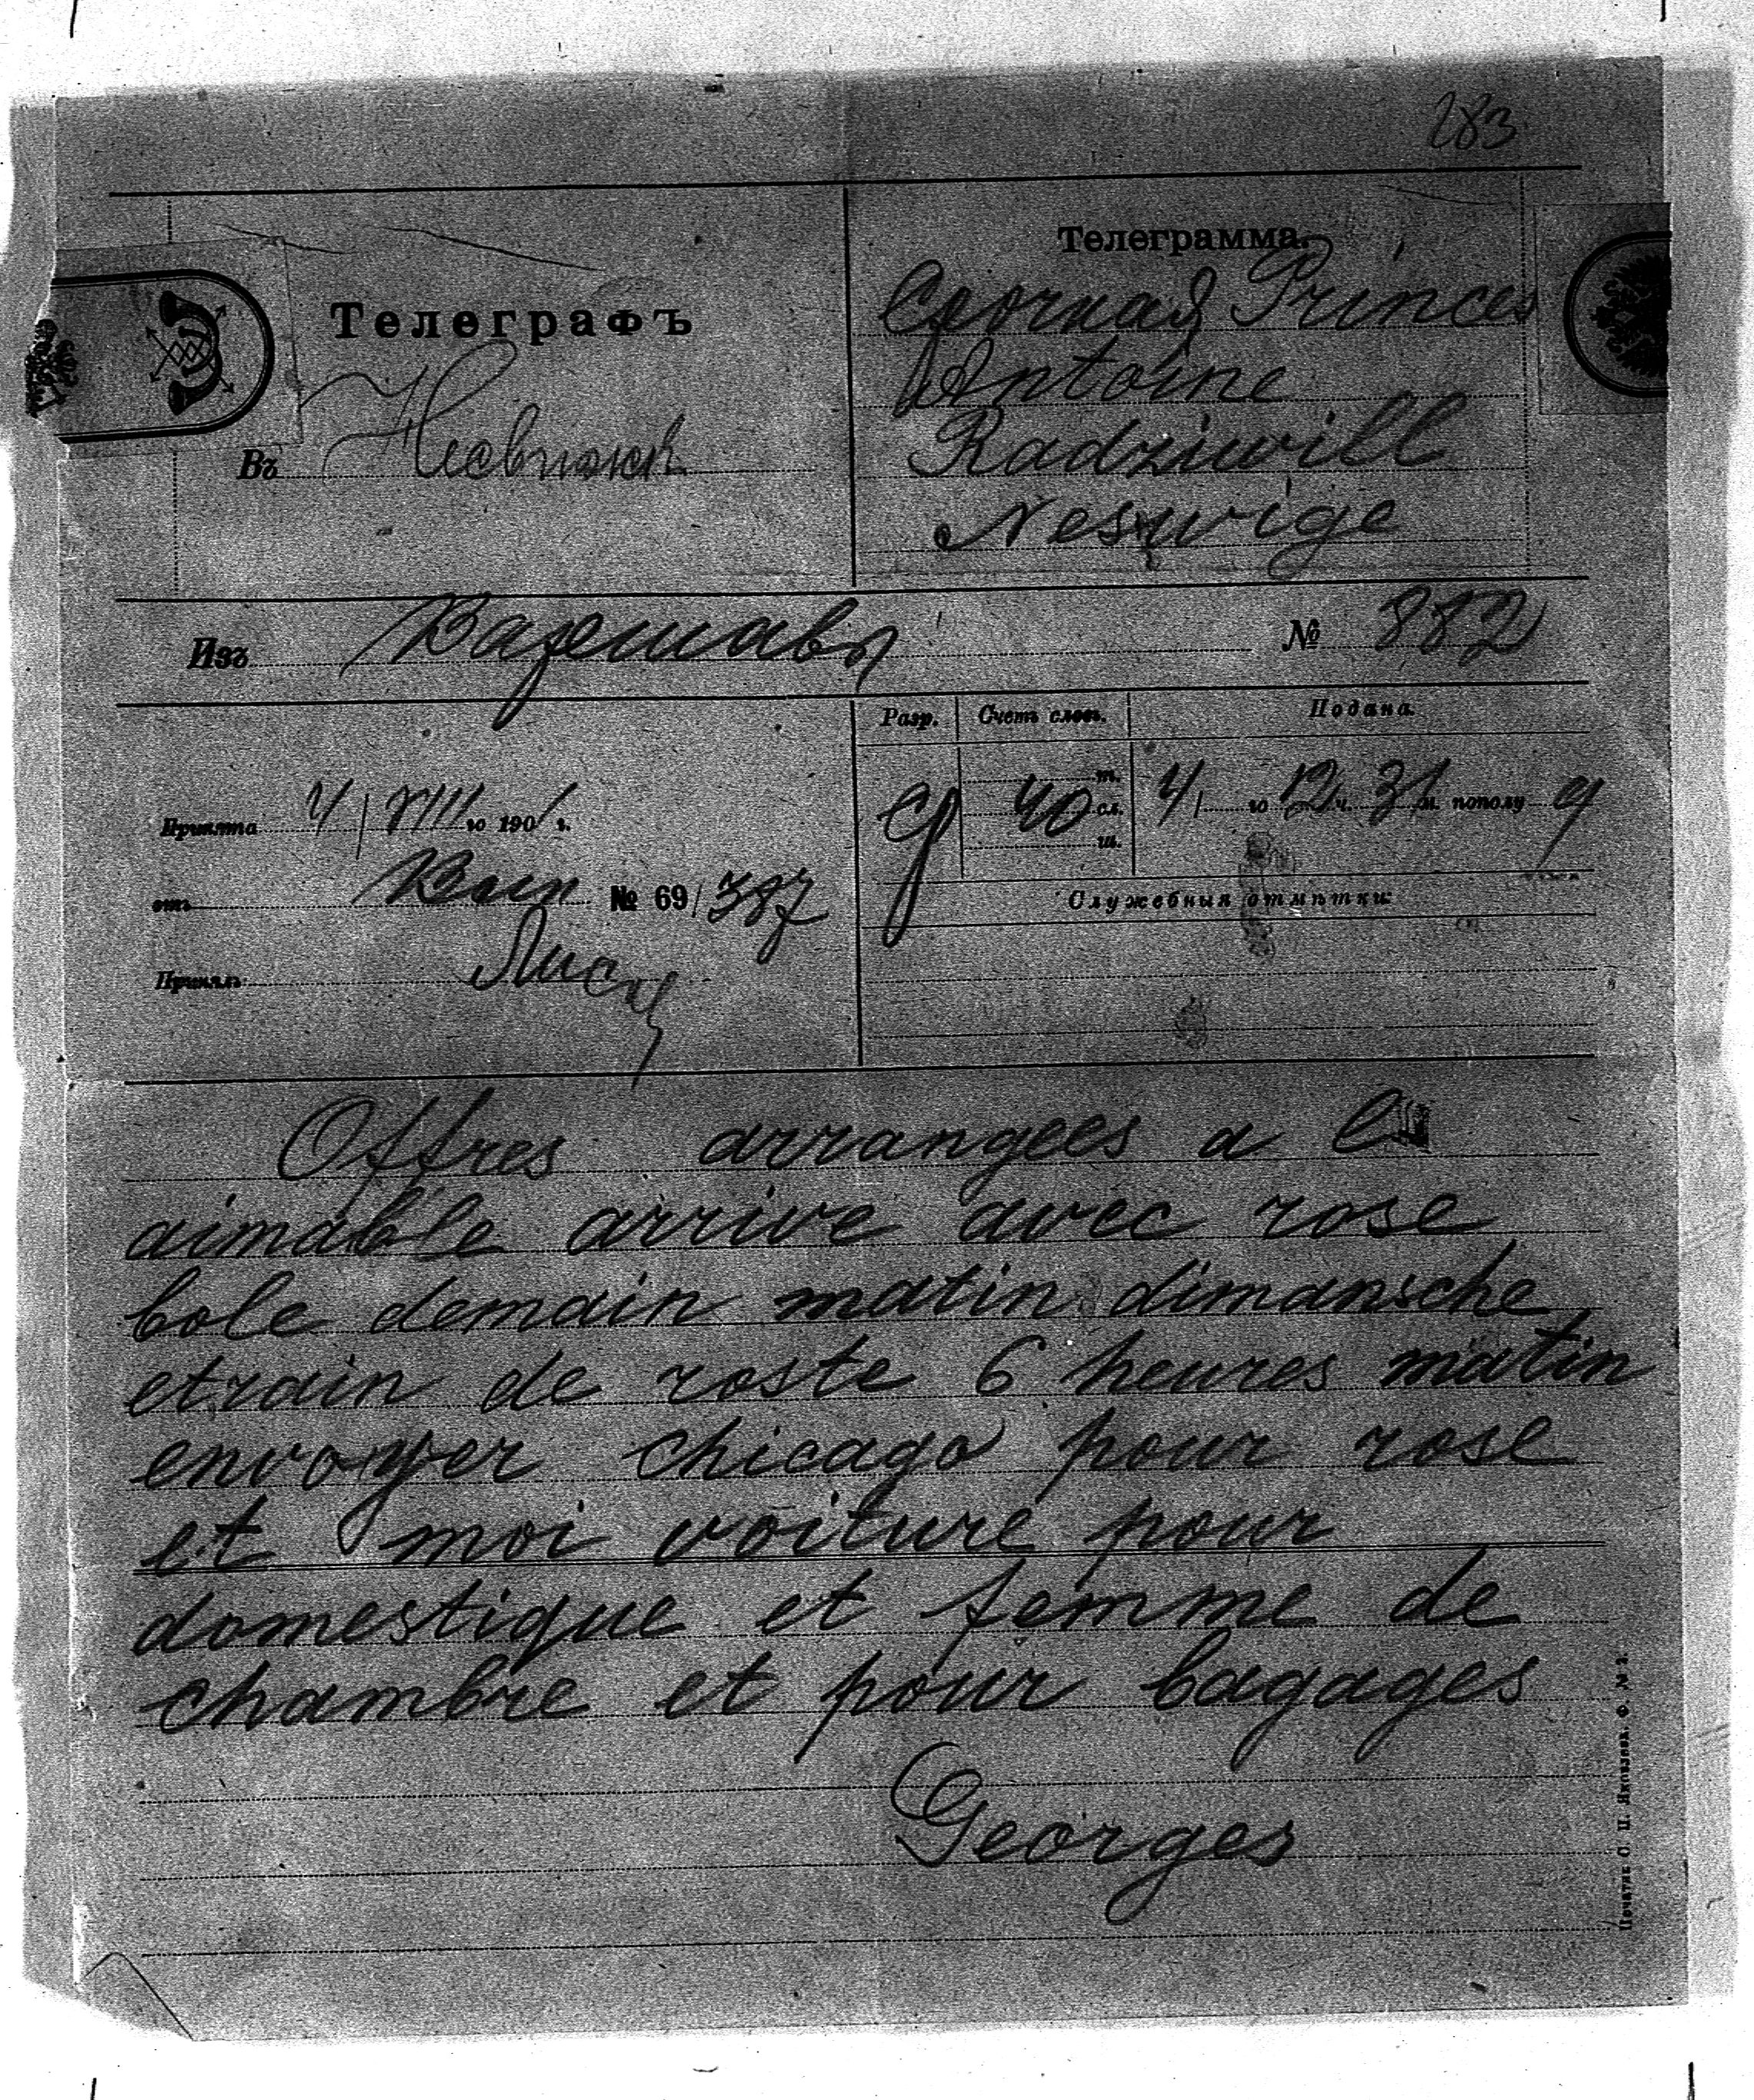 283
Телеграмма.
Срочная Princes
Antoine
Radziwill
Neswige
Телеграфъ
Въ Несвижъ
Изъ Варшавы № 882
Разр. Счетъ словъ. Подана.
Принята 4/VIII го 1901 г.
т.
Ср 40 сл. 4/ го 12 ч. 31 м. пополу д
ш.
отъ № 69/387
Служебныя отмѣтки:
Принялъ
Offres arrangees a l
aimable arrive avec rose
bole demain matin dimansche
etrain de roste 6 heures matin
envoyer chicago pour rose
et moi voiture pour
domestique et femme de
chambre et pour bagages
Georges
Печатня С. П. Яковлева. Ф. № 2.